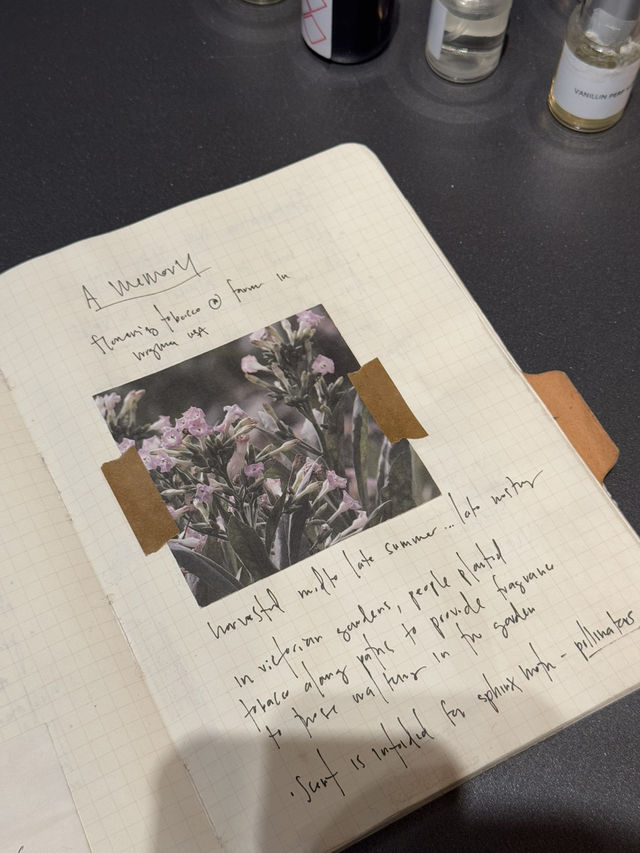 A memory
flowering tobacco @ farm in
virginia USA
harvested mid to late summer... late
in victorian gardens, people planted
tobacco along paths to provide fragrance
to those walking in the garden
. Scent is intended for sphinx moth - pllinators
VANILLIN